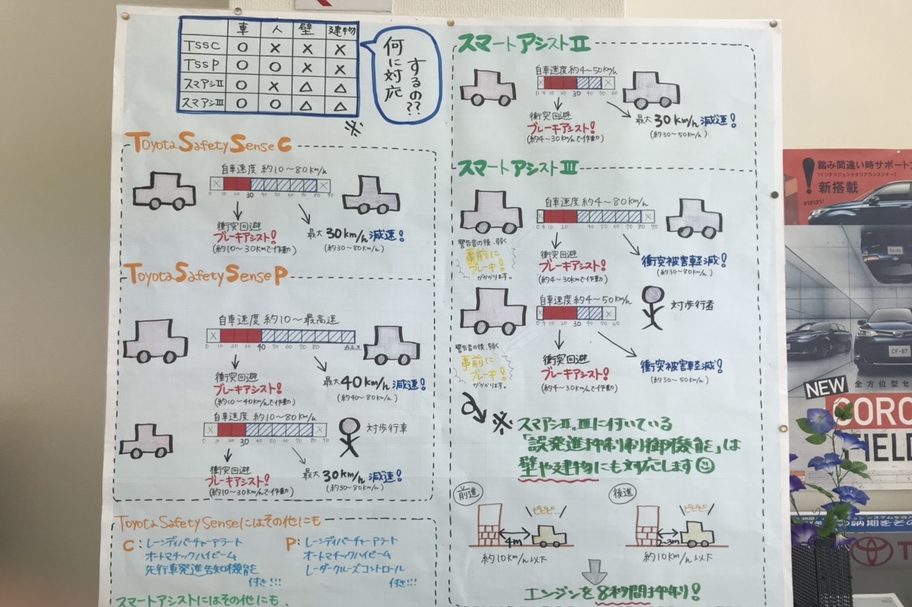 車 人 壁 建物
TSSC ○ × × ×
TSSP ○ ○ × ×
スマアシⅡ ○ × △ △
スマアシⅢ ○ ○ △ △
何に対応
するの??
※
Toyota Safety Sense C
自車速度 約10〜80km/h
30
衝突回避
ブレーキアシスト!
(約10〜30km/hで作動)
最大30km/h減速!
(約30〜80km/h)
Toyota Safety Sense P
自車速度 約10〜最高速
40
衝突回避
ブレーキアシスト!
(約10〜40km/hで作動)
最大40km/h減速!
(約40〜80km/h)
自車速度 約10〜80km/h
30
対歩行車
衝突回避
ブレーキアシスト!
(約10〜30km/hで作動)
最大30km/h減速!
(約30〜80km/h)
Toyota Safety Senseにはその他にも
C:レーンディパーチャーアラート
オートマチックハイビーム
先行車発進告知機能を
付き!!!
P:レーンディパーチャーアラート
オートマチックハイビーム
レーダークルーズコントロール
付き!!!
スマートアシストにはその他にも、
スマートアシストⅡ
自車速度 約4〜50km/h
30
衝突回避
ブレーキアシスト!
(約4〜30km/hで作動)
最大30km/h減速!
(約30〜50km/h)
スマートアシストⅢ
自車速度 約4〜80km/h
30
警告音の後、弱く
事前に
ブレーキ!
がかかります。
衝突回避
ブレーキアシスト!
(約4〜30km/hで作動)
衝突被害軽減!
(約30〜80km/h)
自車速度 約4〜50km/h
30
対歩行者
警告音の後、弱く
事前に
ブレーキ!
がかかります。
衝突回避
ブレーキアシスト!
(約4〜30km/hで作動)
衝突被害軽減!
(約30〜50km/h)
※スマアシⅡ、Ⅲに付いている
「誤発進抑制制御機能」は
壁や建物にも対応します
前進
4m
約10km/h以下
後進
2~3m
約10km/h以下
エンジンを8秒間抑制!
踏み間違い時サポートブ
(インテリジェントクリアランスソナー)
新搭載
CF-87
NEW
全方位型セ
CORO
FIELD
TOY